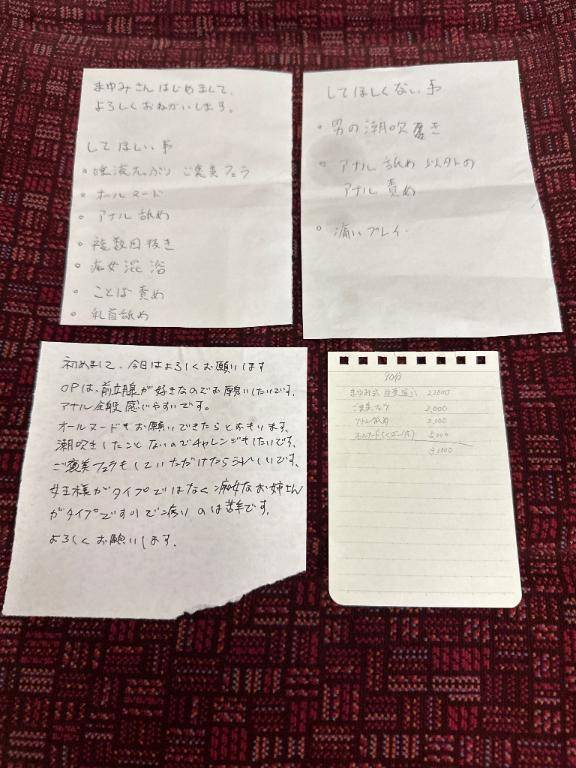 まゆみさんはじめまして、
よろしくおねがいします。
してほしい事
・唾液たっぷり ご褒美フェラ
・オールヌード
・アナル舐め
・複数回抜き
・痴女混浴
・ことば責め
・乳首舐め
してほしくない事
・男の潮吹き
・アナル舐め以外の
アナル責め
・痛いプレイ
初めまして、今日はよろしくお願いします
OPは、前立腺が好きなのでお願いしたいです。
アナル全般感じやすいです。
オールヌードもお願いできたらとおもいます。
潮吹きしたことないのでチャレンジもしたいです。
ご褒美フェラもしていただけたらうれしいです。
女王様がタイプではなく痴女なお姉さん
がタイプですので痛いのは苦手です。
よろしくお願いします。
70分
まゆみ 21000
ご褒美フェラ 2,000
アナル舐め
オールヌード 5,000